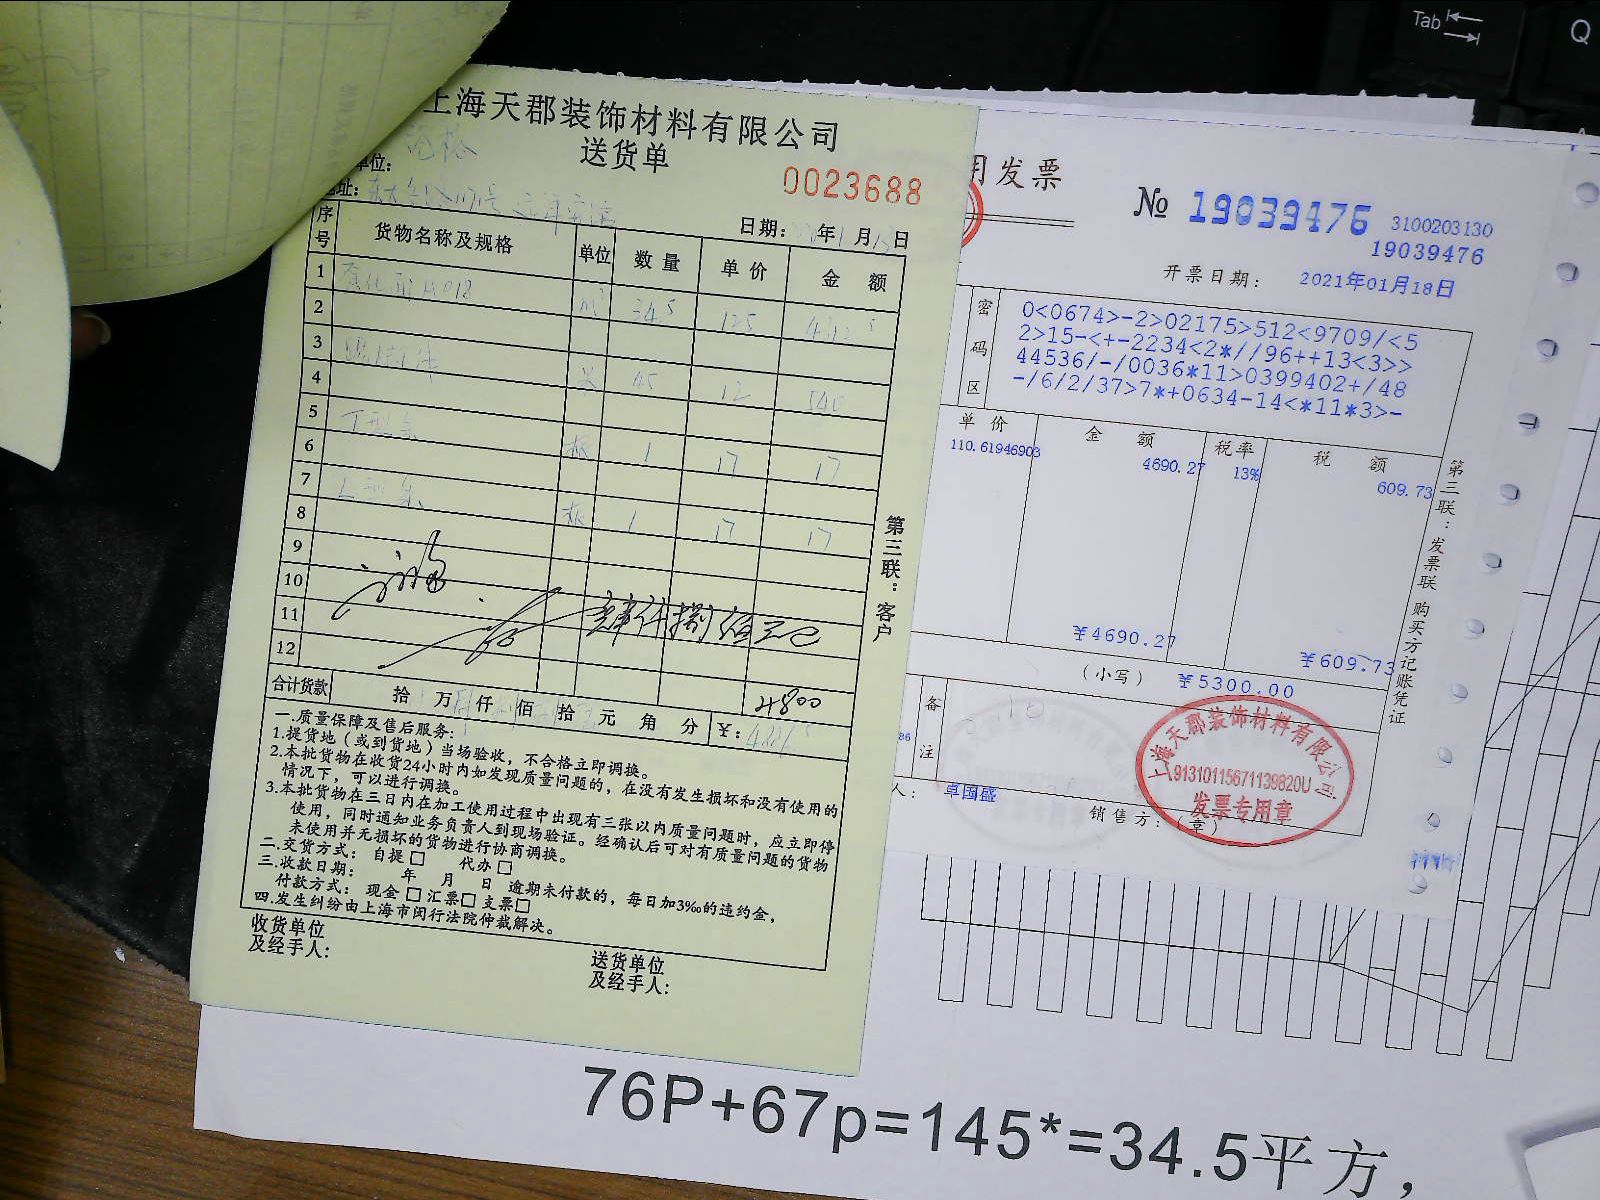 上海天郡装饰材料有限公司
送货单
0023688
单位:
地址:
日期: 年1月13日
序号 货物名称及规格 单位 数量 单价 金额
1
2 m² 34.5 125 4312.5
3
4 米 45 12 540
5 T型条
6 根 1 17 17
7 L型条
8 根 1 17 17
9
10
11
12
合计货款 拾 万 仟 佰 拾 元 角 分 ¥:
4800
第三联:客户
一.质量保障及售后服务:
1.提货地(或到货地)当场验收,不合格立即调换。
2.本批货物在收货24小时内如发现质量问题的,在没有发生损坏和没有使用的
情况下,可以进行调换。
3.本批货物在三日内在加工使用过程中出现有三张以内质量问题时,应立即停
使用,同时通知业务负责人到现场验证。经确认后可对有质量问题的货物
未使用并无损坏的货物进行协商调换。
二.交货方式: 自提□ 代办□
三.收款日期: 年 月 日 逾期未付款的,每日加3‰的违约金,
付款方式: 现金□ 汇票□ 支票□
四.发生纠纷由上海市闵行法院仲裁解决。
收货单位
及经手人:
送货单位
及经手人:
用发票
№ 19039476
3100203130
19039476
开票日期: 2021年01月18日
密码区
0<0674>-2>02175>512<9709/<5
2>15-<+-2234<2*//96++13<3>>
44536/-/0036*11>0399402+/48
-/6/2/37>7*+0634-14<*11*3>-
单价 金额 税率 税额
110.61946903 4690.27 13% 609.73
¥4690.27 ¥609.73
(小写) ¥5300.00
备注
86
人: 卓国盛
销售方:(章)
上海天郡装饰材料有限公司
91310115671139820U
发票专用章
第三联:发票联 购买方记账凭证
76P+67p=145*=34.5平方,
Tab
Q